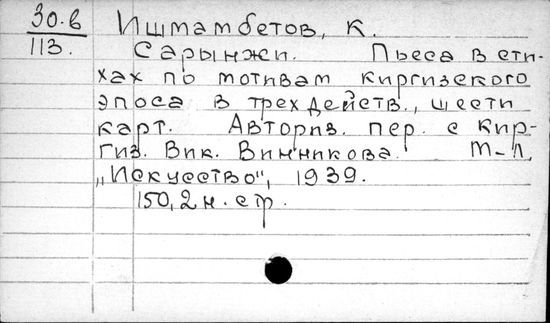 30.в Иштамбетов, К.
113. Сарынжи. Пьеса в сти-
хах по мотивам киргизского
эпоса в трех действ., шести
карт. Авториз. пер. с кир-
гиз. Вик. Винникова. М-Л,
„Искусство", 1939.
150, 2 н. стр.